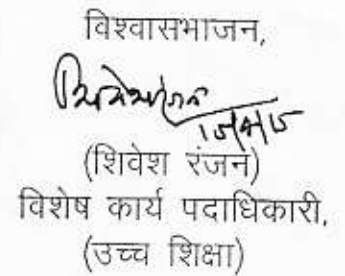 विश्वासभाजन,
(शिवेश रंजन)
विशेष कार्य पदाधिकारी,
(उच्च शिक्षा)